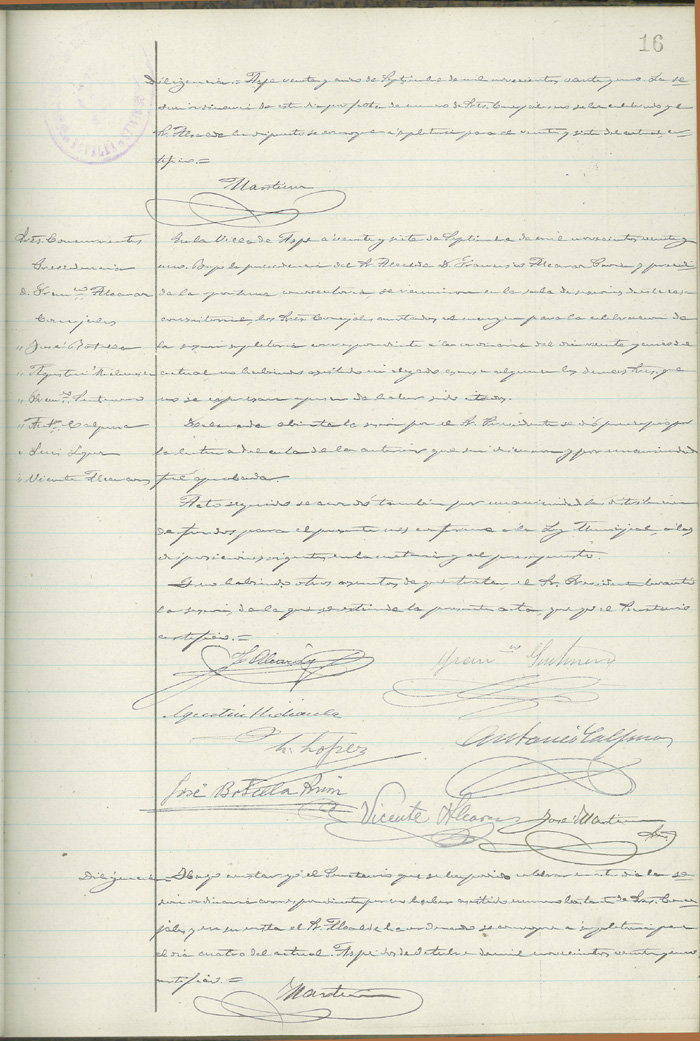 16
Diligencia.= Aspe veinte y seis de Septiembre de mil novecientos veinte y uno. La se-
sion ordinaria de este dia por falta de numero de Sres. Concejales no se ha celebrado y el
Sr. Alcalde ha dispuesto se convoque a supletoria para el veinte y siete del actual, cer-
tifico.=
Martinez
Sres. Concurrentes
Presidencia
D. Franco Alcaraz
Concejales
" José Botella
" Agustin
" Franco
" Anto Calpena
" Luis Lopez
" Vicente Alcaraz
En la Villa de Aspe a veinte y siete de Septiembre de mil novecientos veinte y
uno. Bajo la presidencia del Sr. Alcalde D. Francisco Alcaraz y previa
la oportuna convocatoria, se reunieron en la sala de sesiones de esta casa
consistorial, los Sres. Concejales anotados al margen para la celebracion de
la sesion supletoria correspondiente a la ordinaria del dia veinte y seis del
actual no habiendo asistido ni alegado excusa alguna los demas Sres. que
no se expresan apesar de haber sido citados.
Declarada abierta la sesion por el Sr. Presidente se dió principio por
la lectura del acta de la anterior que fue y por unanimidad
fué aprobada.
Acto seguido se acordó tambien por unanimidad la distribucion
de fondos para el presente mes conforme a la Ley Municipal, a las
disposiciones vigentes en la materia y al presupuesto.
Y no habiendo otros asuntos de que tratar, el Sr. Presidente levantó
la sesion, de la que se extiende la presente acta, que yo el Secretario
certifico.=
F. Alcaraz
Franco
Agustin
L. Lopez
Antonio Calpena
José Botella
Vicente Alcaraz
José Martinez
Diligencia. Hago constar yo el Secretario que no ha podido celebrarse en este dia la se-
sion ordinaria correspondiente por no haber asistido numero bastante de Sres. Conce-
jales y en su vista el Sr. Alcalde ha ordenado se convoque a supletoria para
el dia cuatro del actual. Aspe dos de Octubre de mil novecientos veinte y uno
certifico.=
Martinez